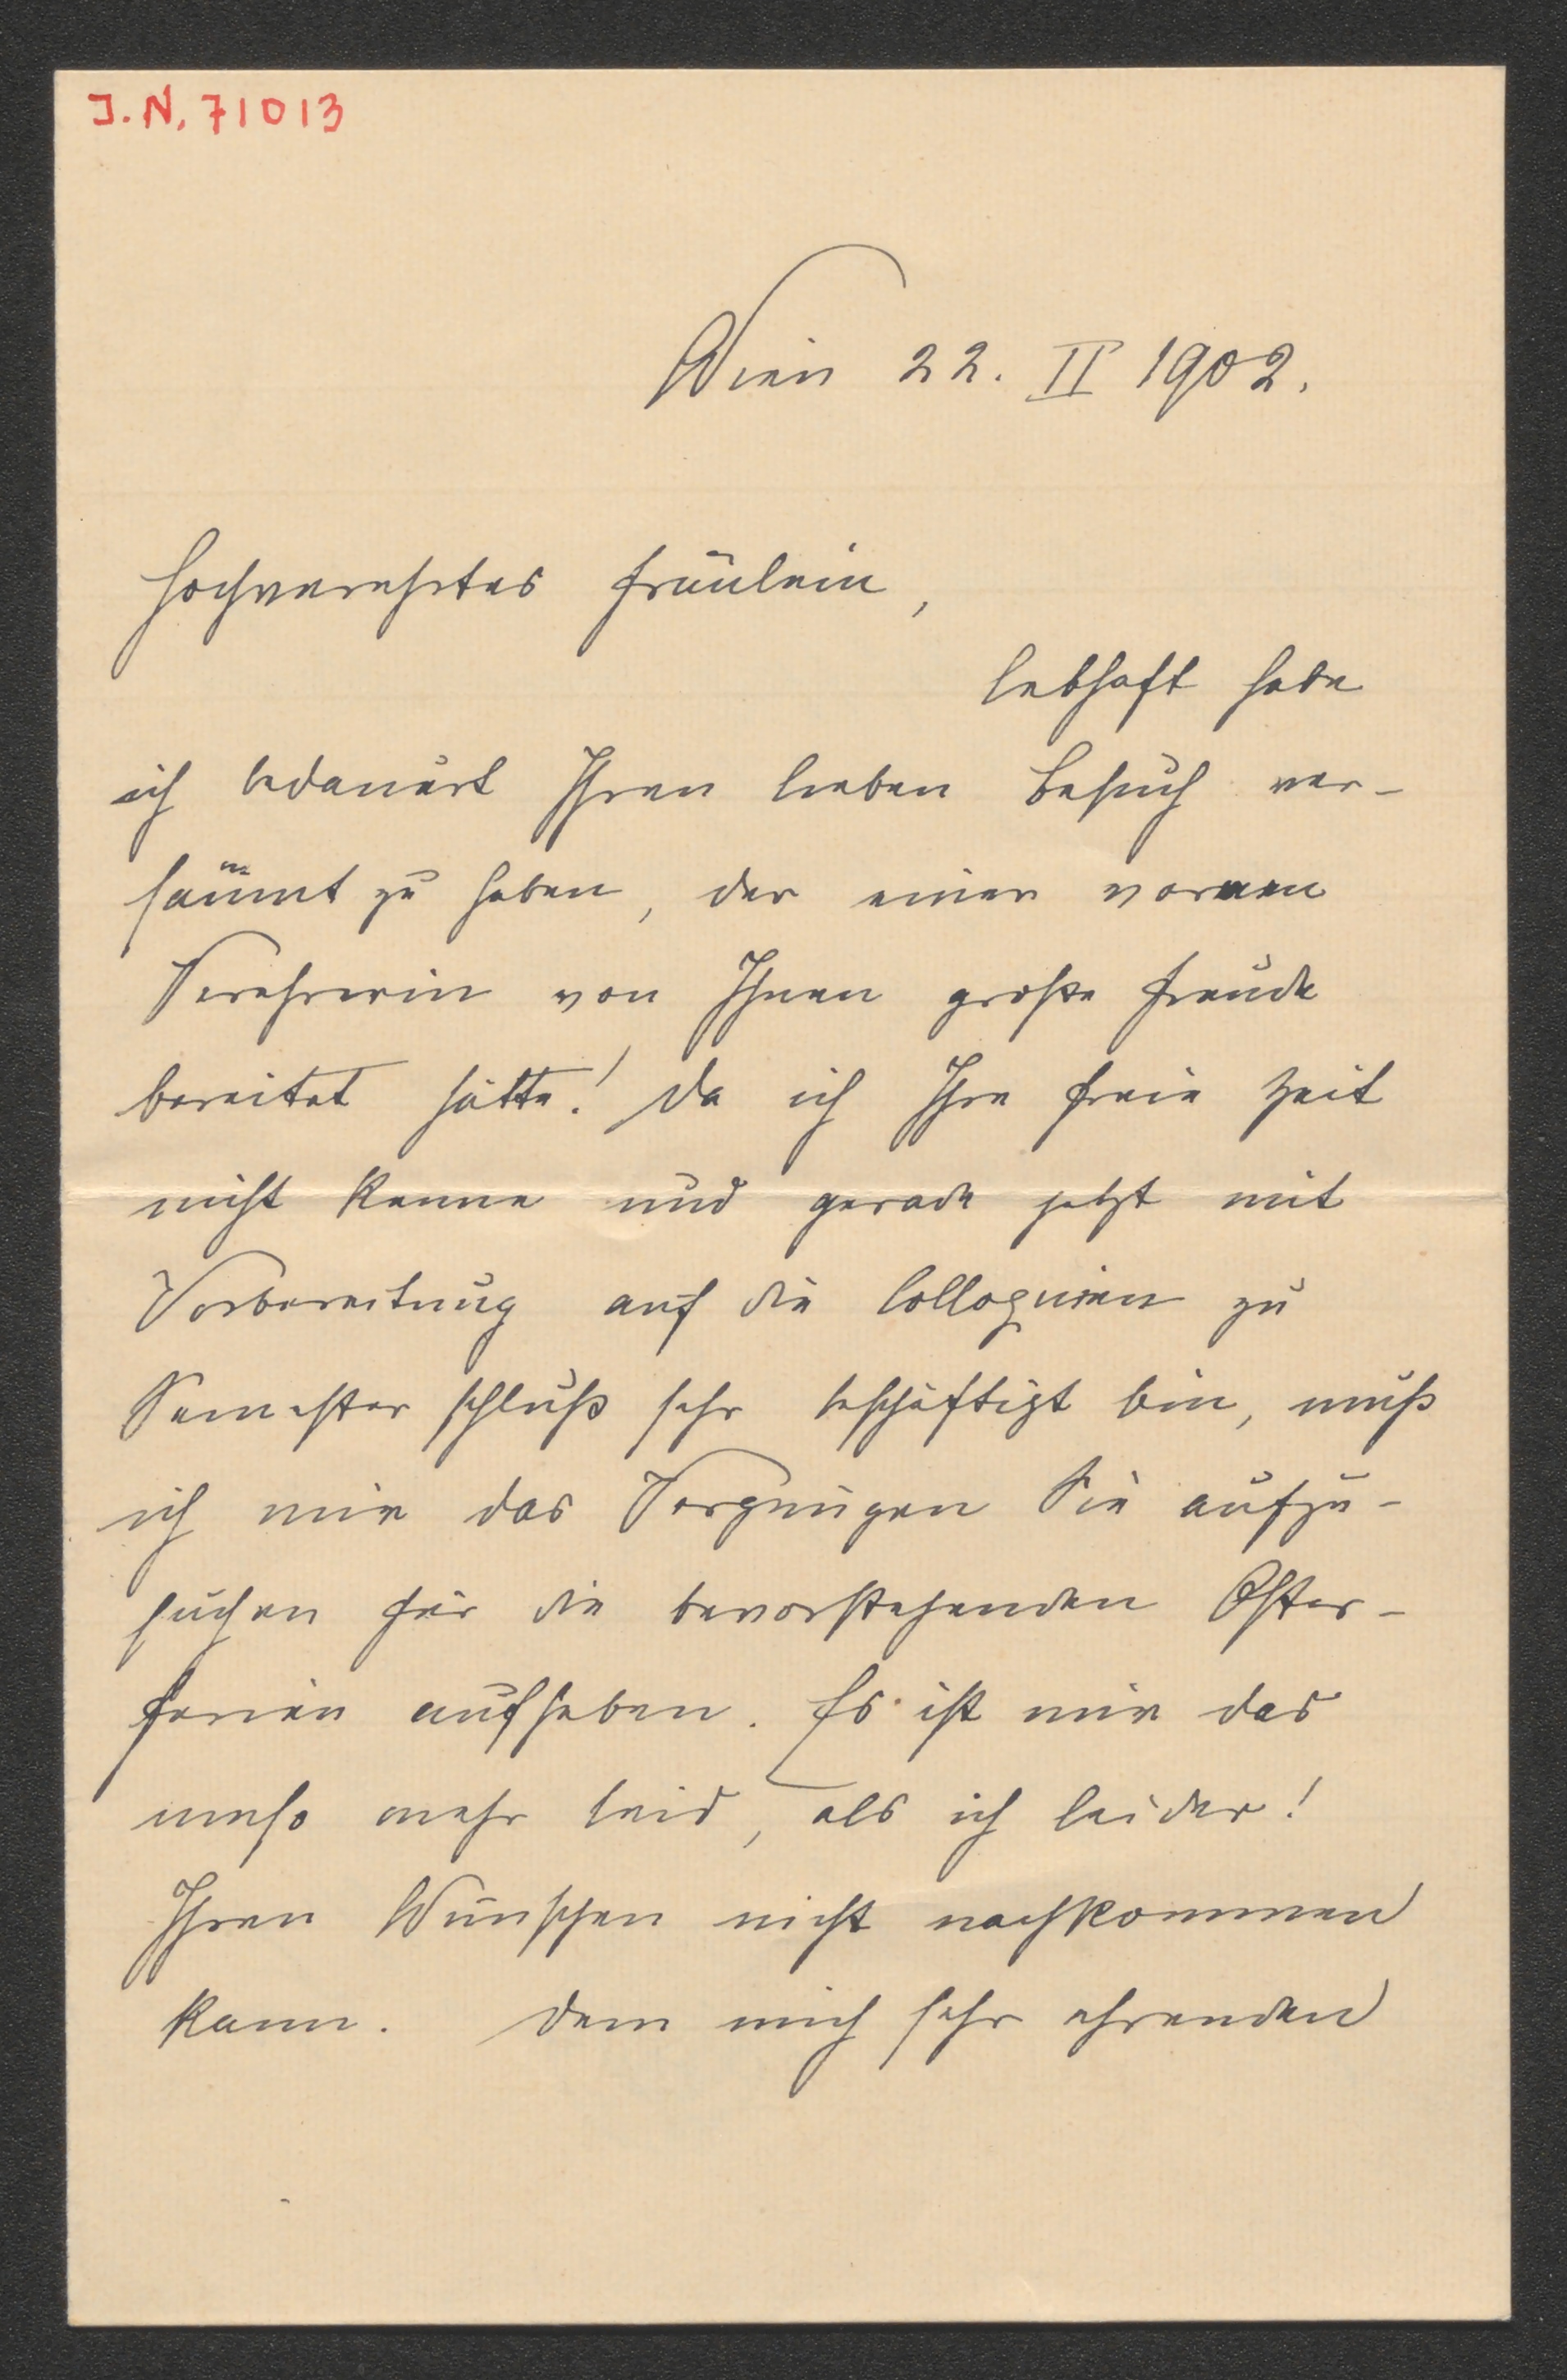 I.N. 71013
Wien 22. II 1902.
Hochverehrtes Fräulein,
lebhaft habe
ich bedauert Ihren lieben Besuch ver-
säumt zu haben, der einer
Verehrerin von Ihnen große Freude
bereitet hätte! Da ich Ihre freie Zeit
nicht kenne und gerade jetzt mit
Vorbereitung auf die Colloquien zu
Semesterschluß sehr beschäftigt bin, muß
ich mir das Vergnügen Sie aufzu-
suchen für die bevorstehenden Oster-
ferien aufheben. Es ist mir das
umso mehr leid, als ich leider!
Ihren Wünschen nicht nachkommen
kann. Dem mich sehr ehrenden